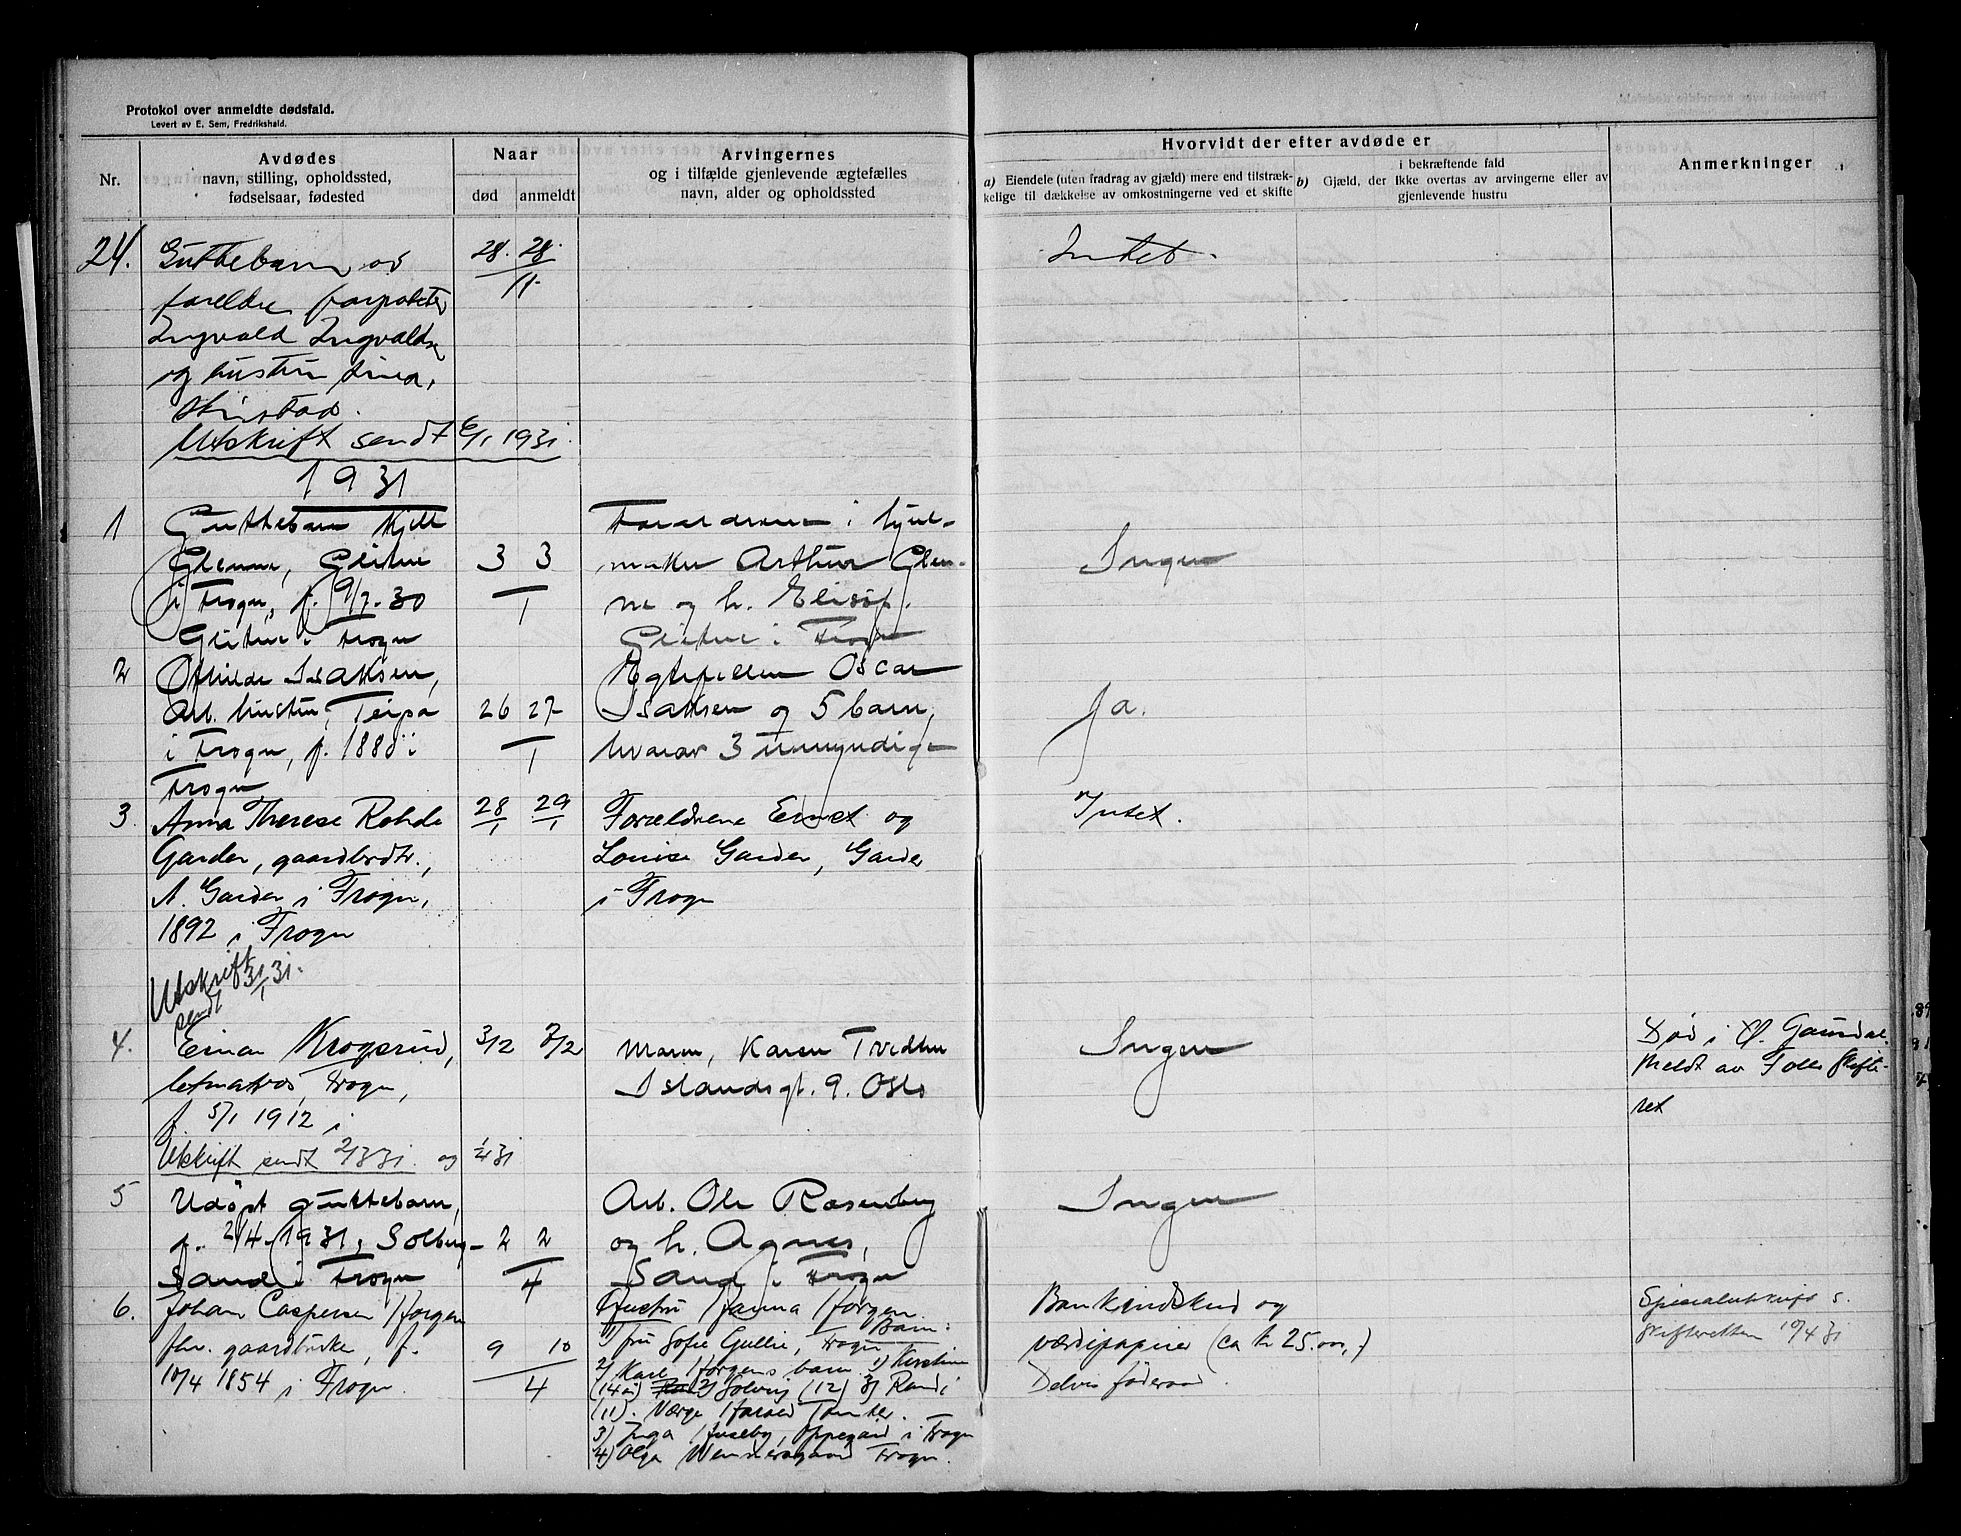 Protokol over anmeldte dødsfald.
Levert av E. Sem, Fredrikshald.
Nr.
Avdødes
navn, stilling, opholdssted,
fødselsaar, fødested
Naar
død
anmeldt
Arvingernes
og i tilfælde gjenlevende ægtefælles
navn, alder og opholdssted
Hvorvidt der efter avdøde er
a) Eiendele (uten fradrag av gjæld) mere end tilstræk-
kelige til dækkelse av omkostningerne ved et skifte
b) Gjæld, der i bekræftende fald
ikke overtas av arvingerne eller av
gjenlevende hustru
Anmerkninger
24.
Guttebarn av
foreldre forpakter
Ingvald Ingvaldsen
og hustru
28. 28.
11.
Intet.
Utskrift sendt 6/1 1931.
1931
1
Guttebarn Kjell
Glenne,
i Frogn, f. 9/7-30
i Frogn
3 3
1
Foreldrene : hjul-
maker Arthur Glen-
ne og h.
i Frogn
Ingen
2
Isaksen,
Arb. hustru, Teipa
i Frogn, f. 1880 i
Frogn
26 27
1
Egtefellen Oscar
Isaksen og 5 barn,
hvorav 3 umyndige
Ja.
3.
Anna Therese Rohde
Garder, gaardbrdtr.,
N. Garder i Frogn,
1892 i Frogn
28/1 29/1
Forældrene Ernst og
Louise Garder, Garder
i Frogn
Intet.
Utskrift sendt 31/1 31.
4.
Einar Krogsrud,
letmatros, Frogn,
f. 5/1 1912 i
3/2 7/2
Moren, Karen Tvedten
Islandsgt. 9. Oslo
Ingen
Død i Ø. Gausdal.
Meldt av Follo skifte-
ret
Utskrift sendt 2/3 31. og 1/4 31
5
Udøpt guttebarn,
f. 2/4-1931, Solberg-
Sand i Frogn
2 2
4
Arb. Ole Rosenberg
og h. Agnes,
Sand i Frogn
Ingen
6.
Johan Caspersen Horgen
fhv. gaardbruker, f.
10/4 1854 i Frogn.
9 10
4
Hustru Hanna Horgen
Barn:
1) fru Sofie Gulli, Frogn
2) Karl Horgens barn 1) Kirstine
(14 år) 2) Solveig (12) 3) Randi
(11). Værge Harald Tomter.
3) Inga Huseby, Oppegård i Frogn
4) Olga Frogn.
Bankindskud og
værdipapirer (ca kr 25.000,-)
Delvis føderaad.
Spesialutskrift s.
skifteretten 10/4 31